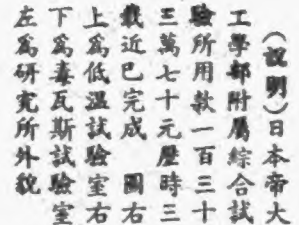 （說明）日本帝大
工學部附屬綜合試
驗所用款一百三十
三萬七十元歷時三
載近已完成　圖右
上為低溫試驗室右
下為毒瓦斯試驗室
左為研究所外貌